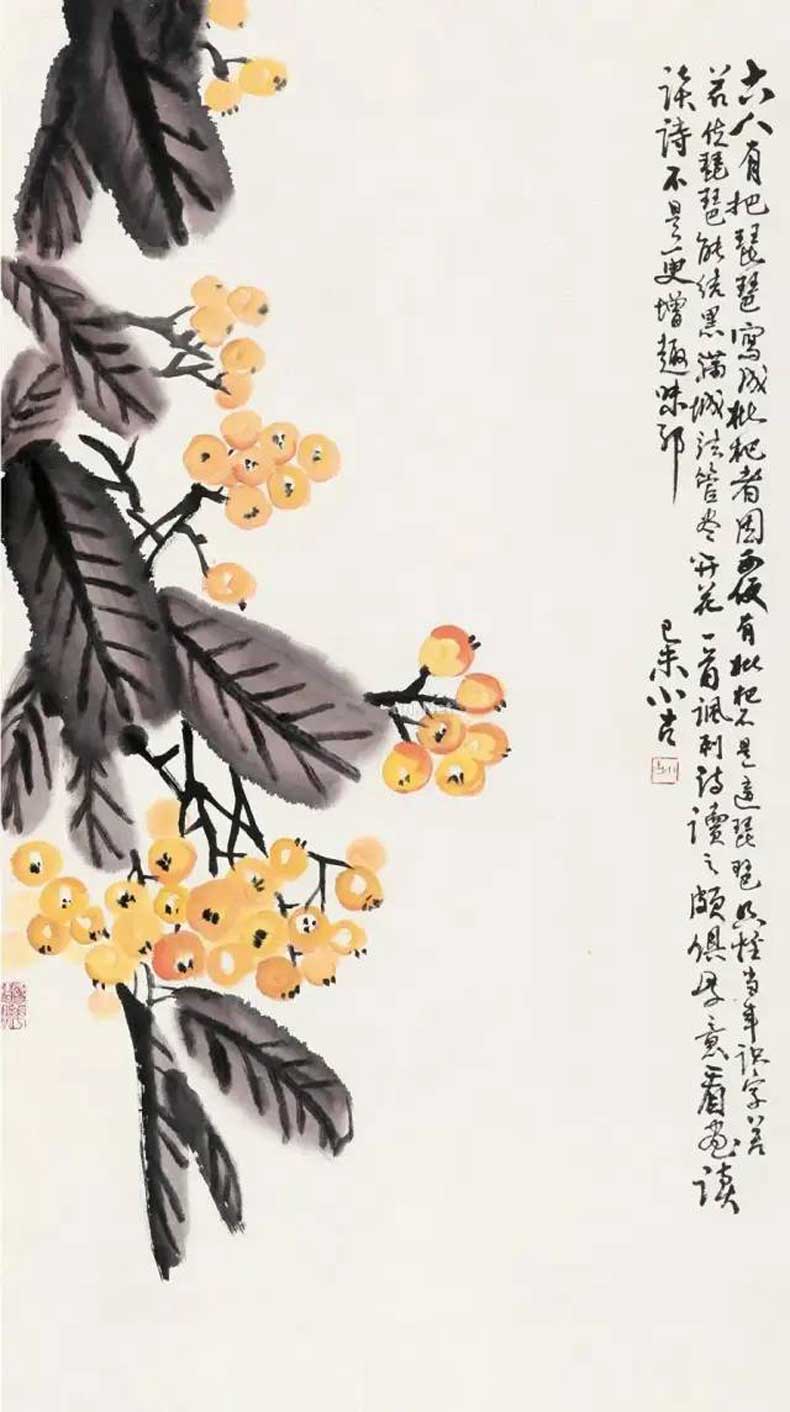 古人有把琵琶寫成枇杷者因而便有枇杷不是這琵琶只怪當年识字差
若使琵琶能结果满城法管尽开花一首讽刺诗读之颇俱风意看画读
读诗不是更增趣味耶
己未小吉